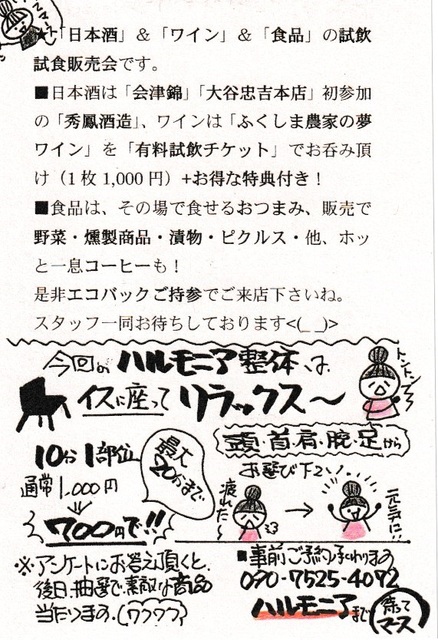 ★「日本酒」&「ワイン」&「食品」の試飲
試食販売会です。
■日本酒は「会津錦」「大谷忠吉本店」初参加
の「秀鳳酒造」、ワインは「ふくしま農家の夢
ワイン」を「有料試飲チケット」でお呑み頂
け（1枚1,000円）+お得な特典付き！
■食品は、その場で食せるおつまみ、販売で
野菜・燻製商品・漬物・ピクルス・他、ホッ
と一息コーヒーも！
是非エコバックご持参でご来店下さいね。
スタッフ一同お待ちしております<(_ _)>
今回のハルモニア整体は
イスに座ってリラックス～
トントン
頭・首・肩・腕・足から
お選び下さい‥
10分1部位
最大
20分まで
通常1,000円
700円で!!
疲れた～
→
元気に!!
※アンケートにお答え頂くと、
後日、抽選で素敵な商品
当たります。(ワクワク)
■事前ご予約承ります
090-7525-4092
ハルモニアまで
待って
マース